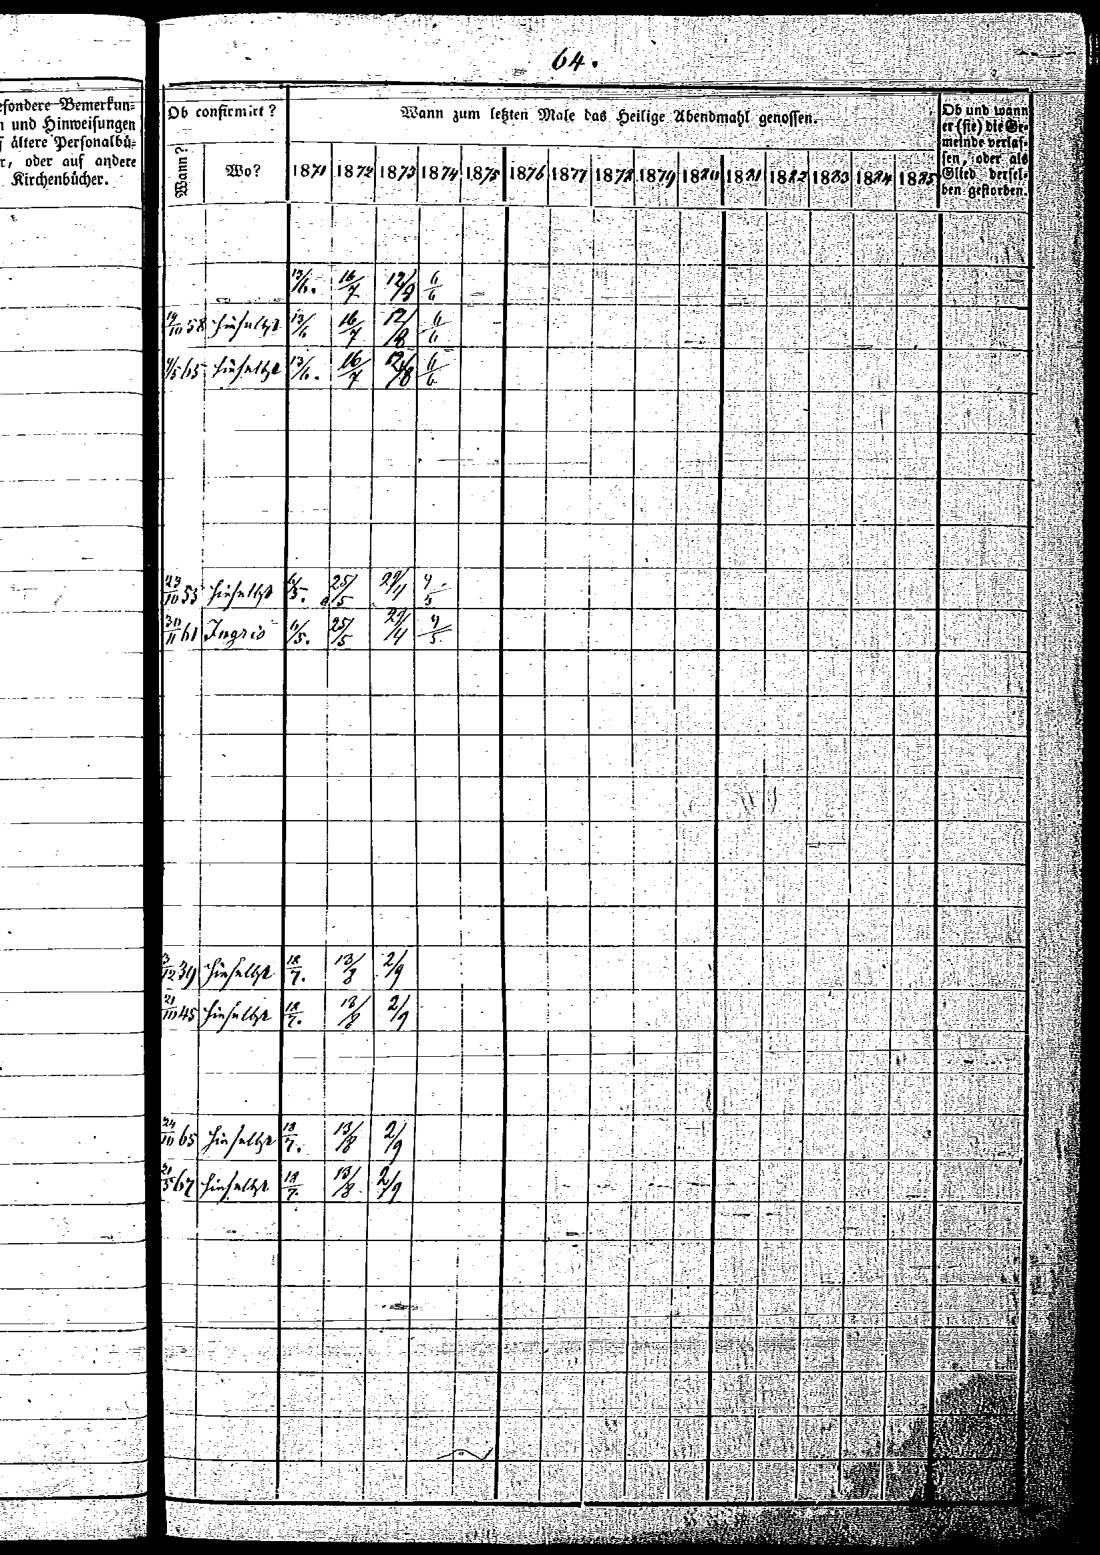 64.
esondere Bemerkun=
n und Hinweisungen
f ältere Personalbü=
r, oder auf andere
Kirchenbücher.
Ob confirmirt?
Wann zum letzten Male das Heilige Abendmahl genossen.
Ob und wann
er (sie) die Ge=
meinde verlas=
sen, oder als
Glied dersel=
ben gestorben.
Wann? Wo? 1871 1872 1873 1874 1875 1876 1877 1878 1879 1880 1881 1882 1883 1884 1885
13/6. 16/7 12/8 6/6
19/10 58 hieselbst 13/6 16/7 12/8 6/6
4/5 65 hieselbst 13/6. 16/7 12/8 6/6
23/10 55 hieselbst 6/5. 25/5 29/4 4/5
30/11 61 Ingris 6/5. 25/5 29/4 4/5
3/12 39 hieselbst 18/7. 13/8 2/9
21/10 45 hieselbst 18/7. 13/8 2/9
24/10 65 hieselbst 18/7. 13/8 2/9
21/5 67 hieselbst 18/7. 13/8 2/9